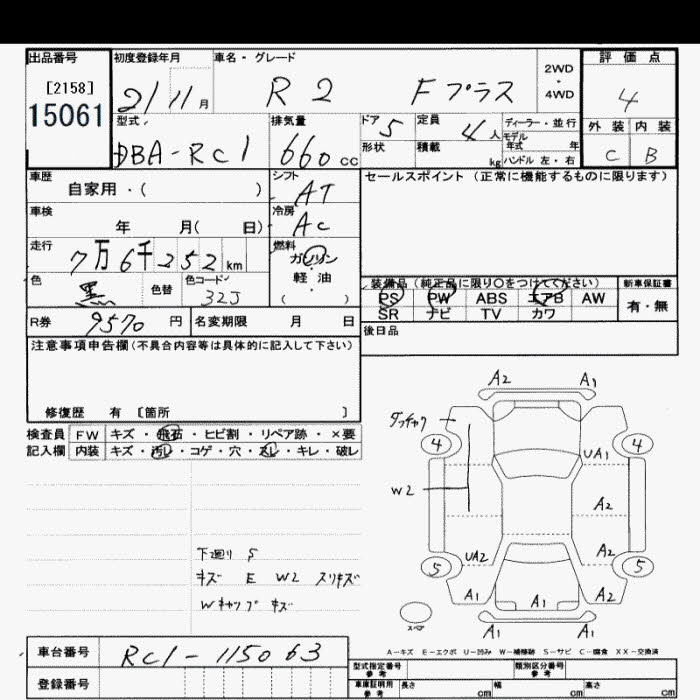 出品番号
[2158]
15061
初度登録年月
21/11月
車名・グレード
R2 Fプラス
2WD・4WD
評価点
4
外装 内装
C B
型式
DBA-RC1
排気量
660cc
ドア
5
形状
定員
4人
積載
kg
ディーラー・並行
モデル年式 年
ハンドル 左・右
車歴
自家用・( )
シフト
AT
車検
年 月( 日)
冷房
AC
走行
7万6千252km
燃料
ガソリン・軽油
( )
色
黒
色替
色コード
32J
R券
9570円
名変期限 月 日
セールスポイント(正常に機能するものに限ります)
装備品(純正品に限り○をつけてください)
PS PW ABS エアB AW
SR ナビ TV カワ
新車保証書
有・無
後日品
注意事項申告欄(不具合内容等は具体的に記入して下さい)
修復歴 有 〔箇所 〕
検査員記入欄
FW キズ・飛石・ヒビ割・リペア跡・×要
内装 キズ・汚レ・コゲ・穴・・キレ・破レ
下廻り S
キズ E W2 スリキズ
Wキャップ キズ
A2 A1
4 4
UA1
W2
A2
UA2 A2
5 5
A1 A1 A1
A1 A1
スペア
A-キズ E-エクボ U-凹み W-補修跡 S-サビ C-腐食 XX-交換済
車台番号
RC1-115063
登録番号
型式指定番号 参考
類別区分番号 参考
車庫証明用 参考
長さ cm 幅 cm 高さ cm